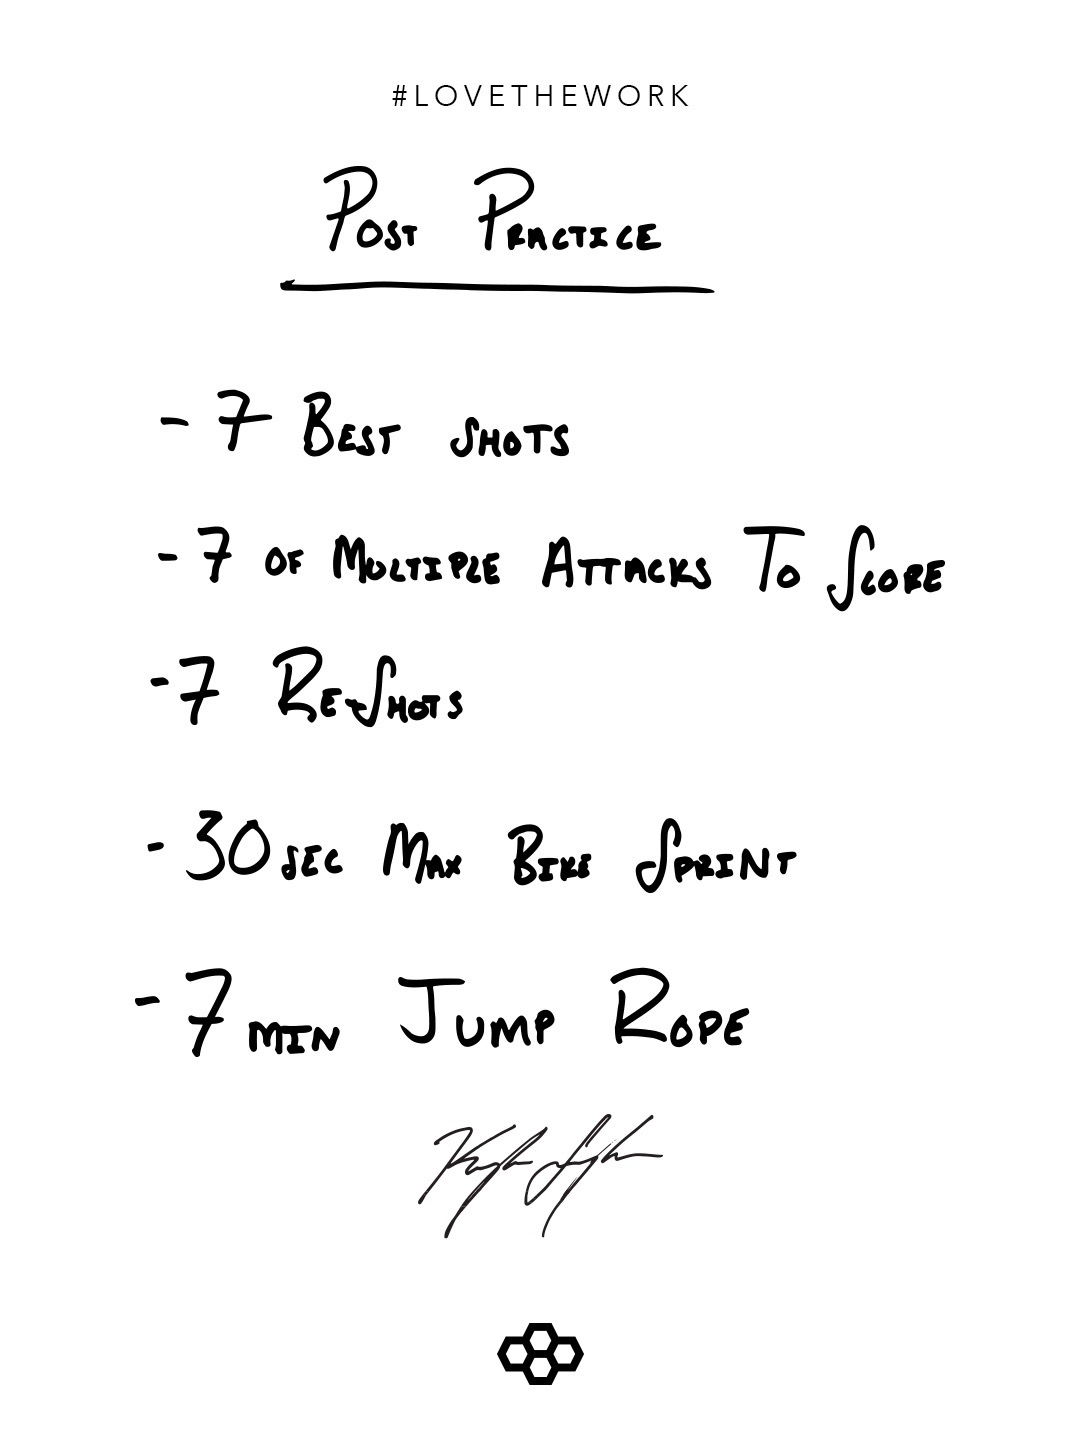 #LOVETHEWORK
Post Practice
- 7 Best Shots
- 7 of Multiple Attacks To Score
- 7 Re-Shots
- 30 sec Max Bike Sprint
- 7 min Jump Rope